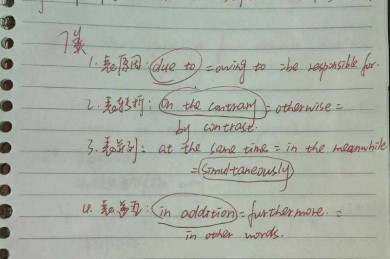 1. 表原因: due to = owing to = be responsible for.
2. 表转折: on the contrary = otherwise =
by contrast.
3. 表并列: at the same time = in the meanwhile
= simultaneously
4. 表: in addition = furthermore. =
in other words.